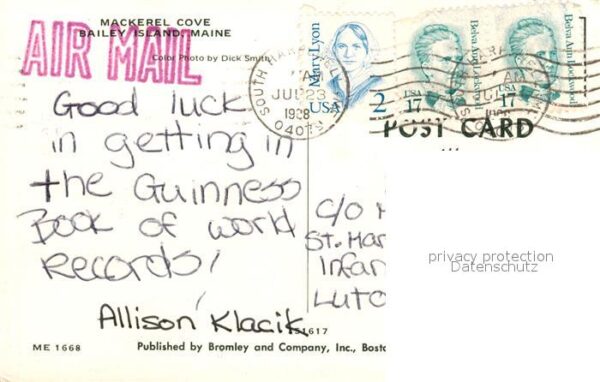 MACKEREL COVE
BAILEY ISLAND, MAINE
AIR MAIL
Color Photo by Dick Smith
Mary Lyon
USA 2
Belva Ann Lockwood
USA 17
Belva Ann Lockwood
USA 17
SOUTH HARPSWELL
AM
JUL 23
1988
POST CARD
Good luck
in getting in
the Guinness
Book of world
Records!
Allison Klacik
C/O
St. Mar
Infan
Luto
privacy protection
Datenschutz
ME 1668
Published by Bromley and Company, Inc., Bosto